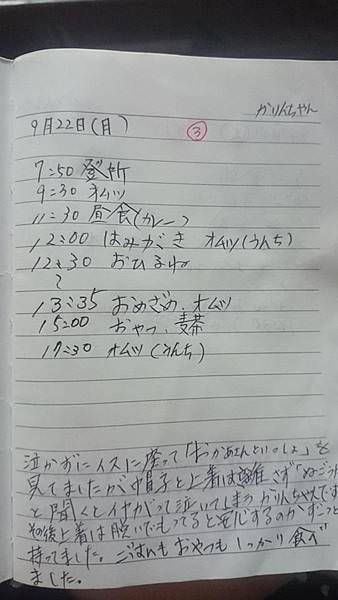 かりんちゃん
9月22日(月)
③
7:50 登所
9:30 オムツ
11:30 昼食(カレー)
12:00 はみがき オムツ(うんち)
12:30 おひるね
〜
13:35 おめざめ、オムツ
15:00 おやつ、麦茶
17:30 オムツ(うんち)
泣かずにイスに座って「おかあさんといっしょ」を
見てましたが帽子と上着は離さず「ぬごうか」
と聞くとイヤがって泣いてしまうかりんちゃんです
その後上着は脱いでもってると安心するのかずっと
持ってました。ごはんもおやつもしっかり食べ
ました。